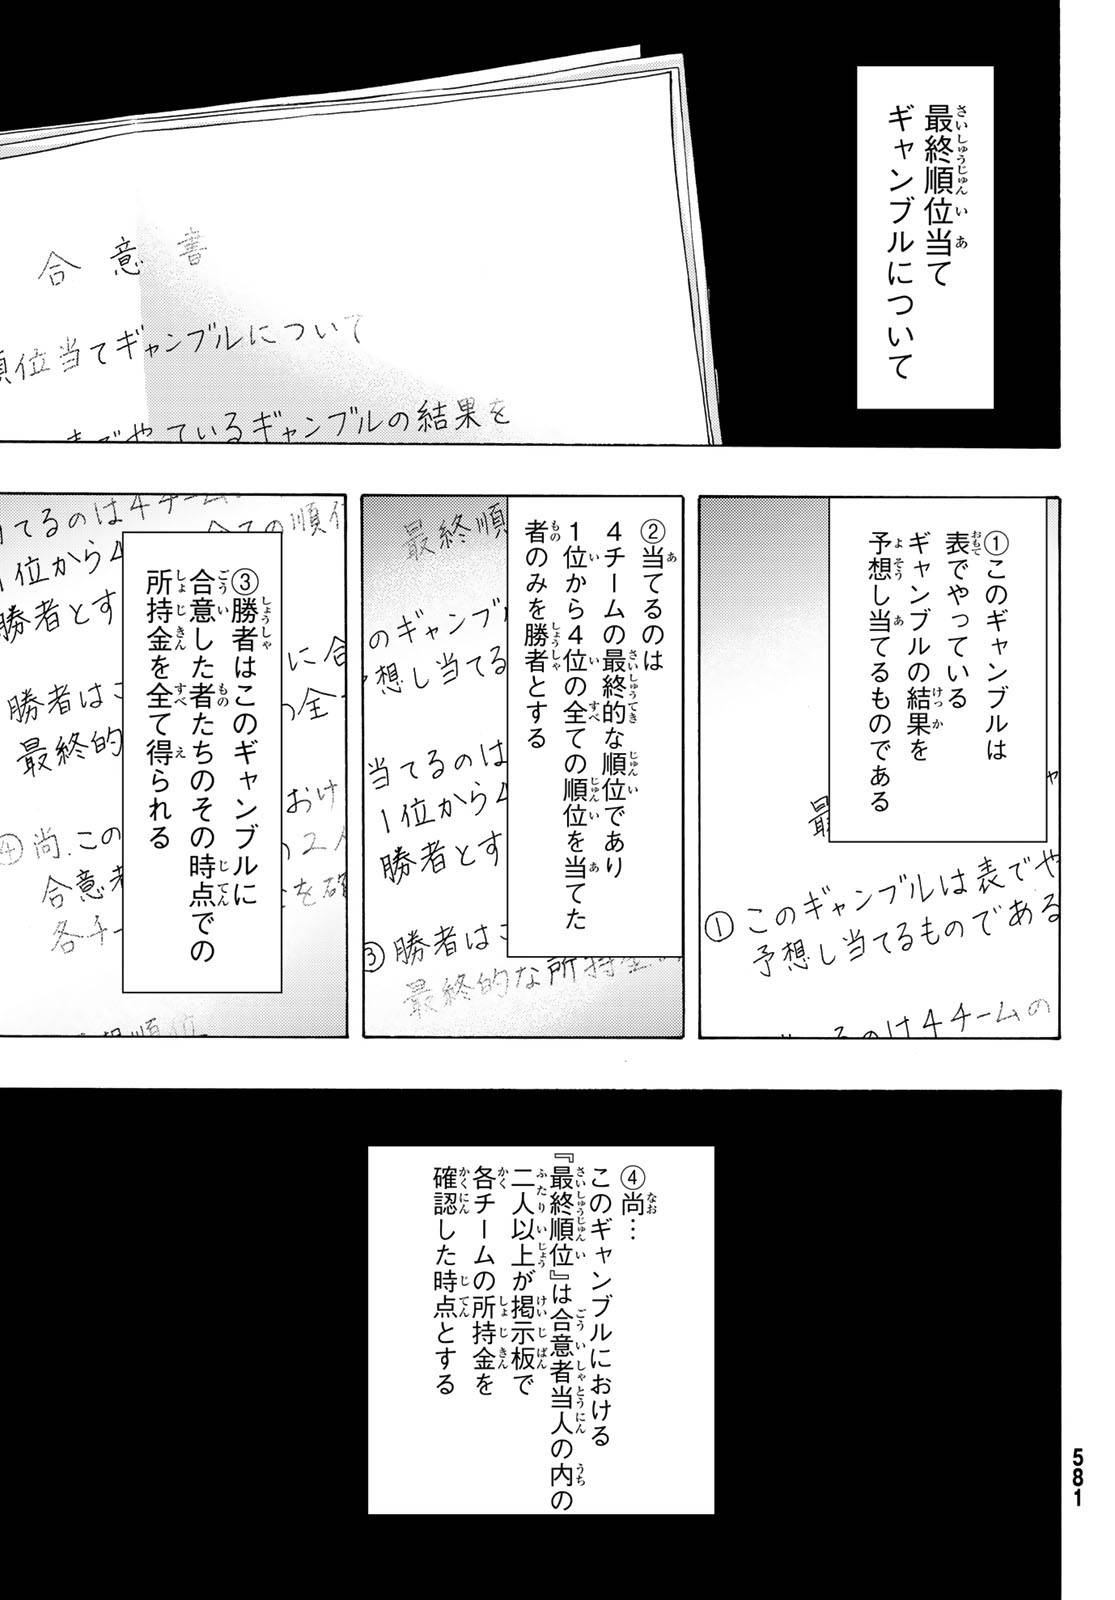 最終順位当て
ギャンブルについて
合意書
順位当てギャンブルについて
表でやっているギャンブルの結果を
①このギャンブルは
表でやっている
ギャンブルの結果を
予想し当てるものである
①このギャンブルは表でや
予想し当てるものである
るのは4チームの
②当てるのは
4チームの最終的な順位であり
1位から4位の全ての順位を当てた
者のみを勝者とする
最終順
のギャンブル
予想し当てる
当てるのは
1位から4
勝者とす
③勝者はこ
最終的な所持金
③勝者はこのギャンブルに
合意した者たちのその時点での
所持金を全て得られる
当てるのは4チーム
全ての順位
1位から4
勝者とす
に合
勝者はこ
の全
最終的
おけ
④尚、この
の2人
合意者
を確
各チー
④尚…
このギャンブルにおける
『最終順位』は合意者当人の内の
二人以上が掲示板で
各チームの所持金を
確認した時点とする
581